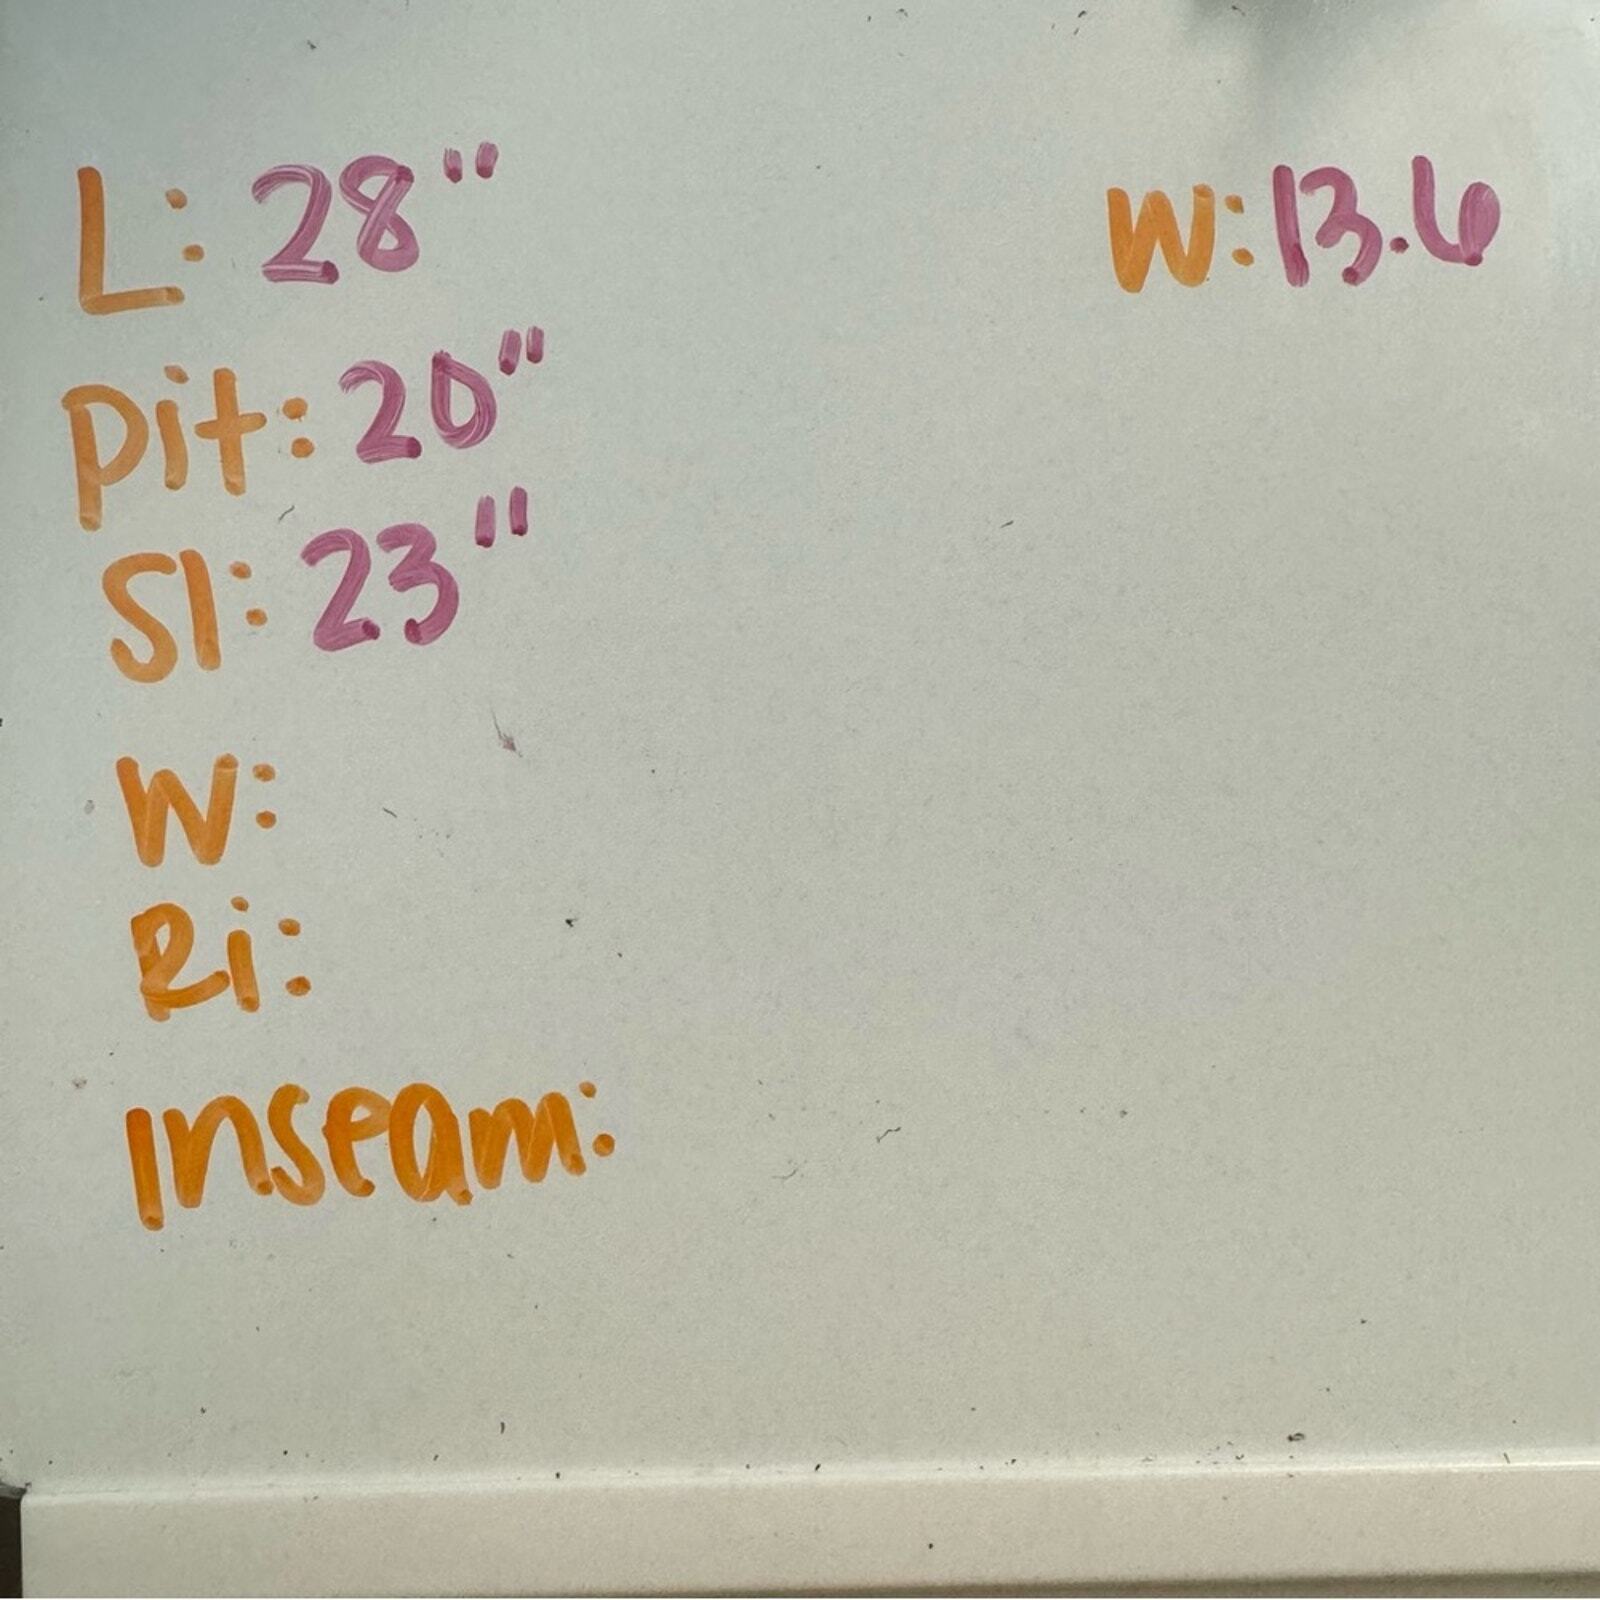 L: 28"
W: 13.6
pit: 20"
Sl: 23"
W:
Ri:
Inseam: